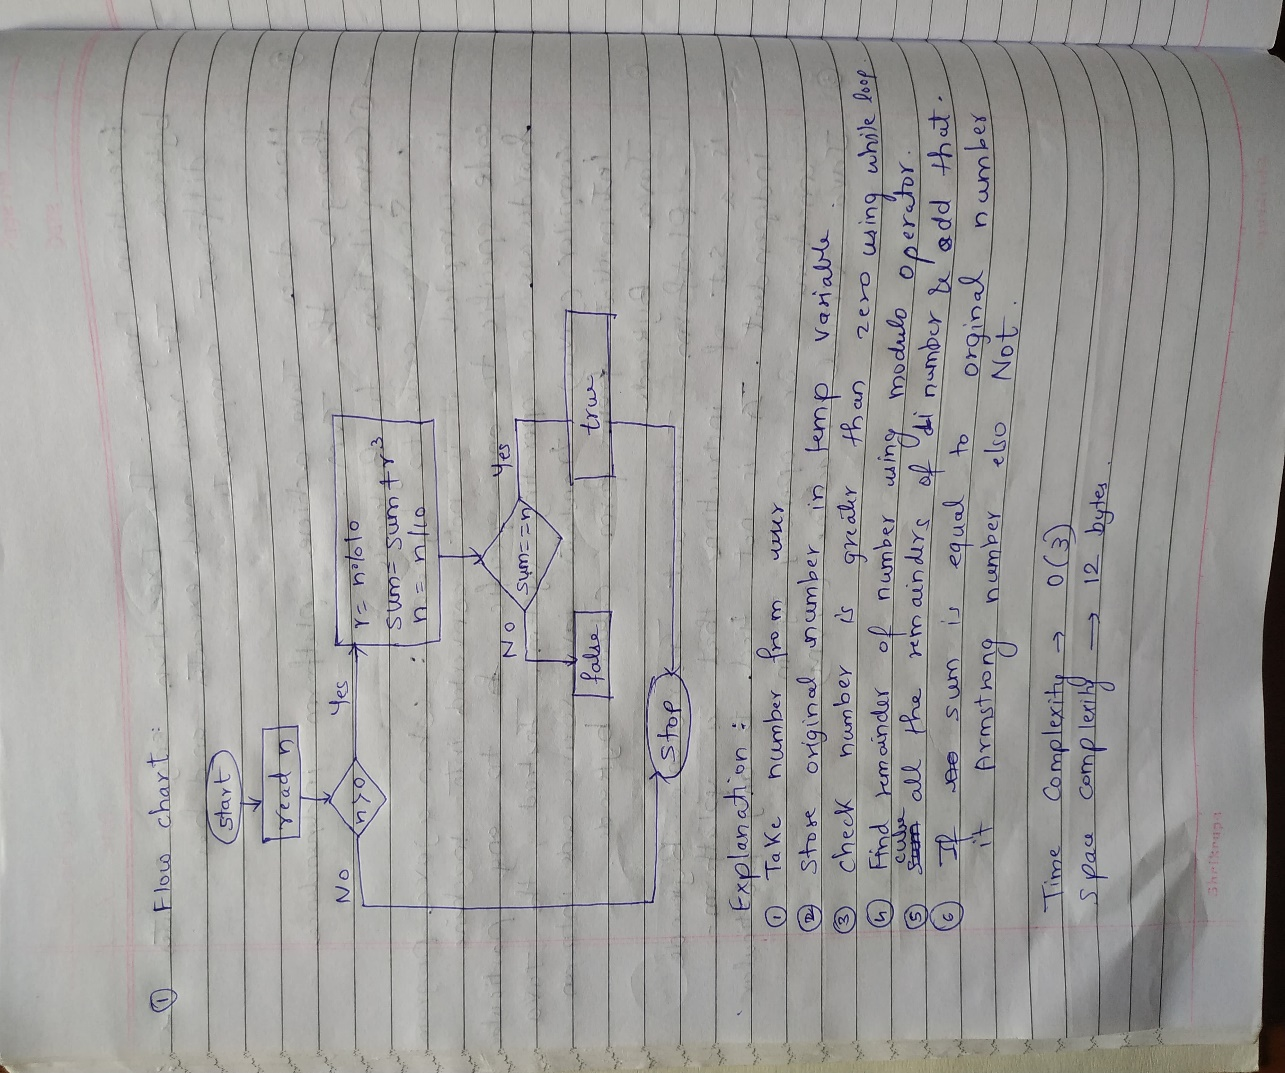 ① Flow chart :
start
read n
n>0
Yes
NO
r = n%10
sum = sum + r³
n = n/10
sum==n
Yes
NO
true
false
stop
Explanation :
① Take number from user
② Store original number in temp variable
③ check number is greater than zero using while loop
④ Find remainder of number using modulo operator.
⑤ cube all the remainders of number & add that.
⑥ If sum is equal to orginal number
it Armstrong number else Not.
Time Complexity → O(3)
Space complexity → 12 bytes.
Shelkrupa